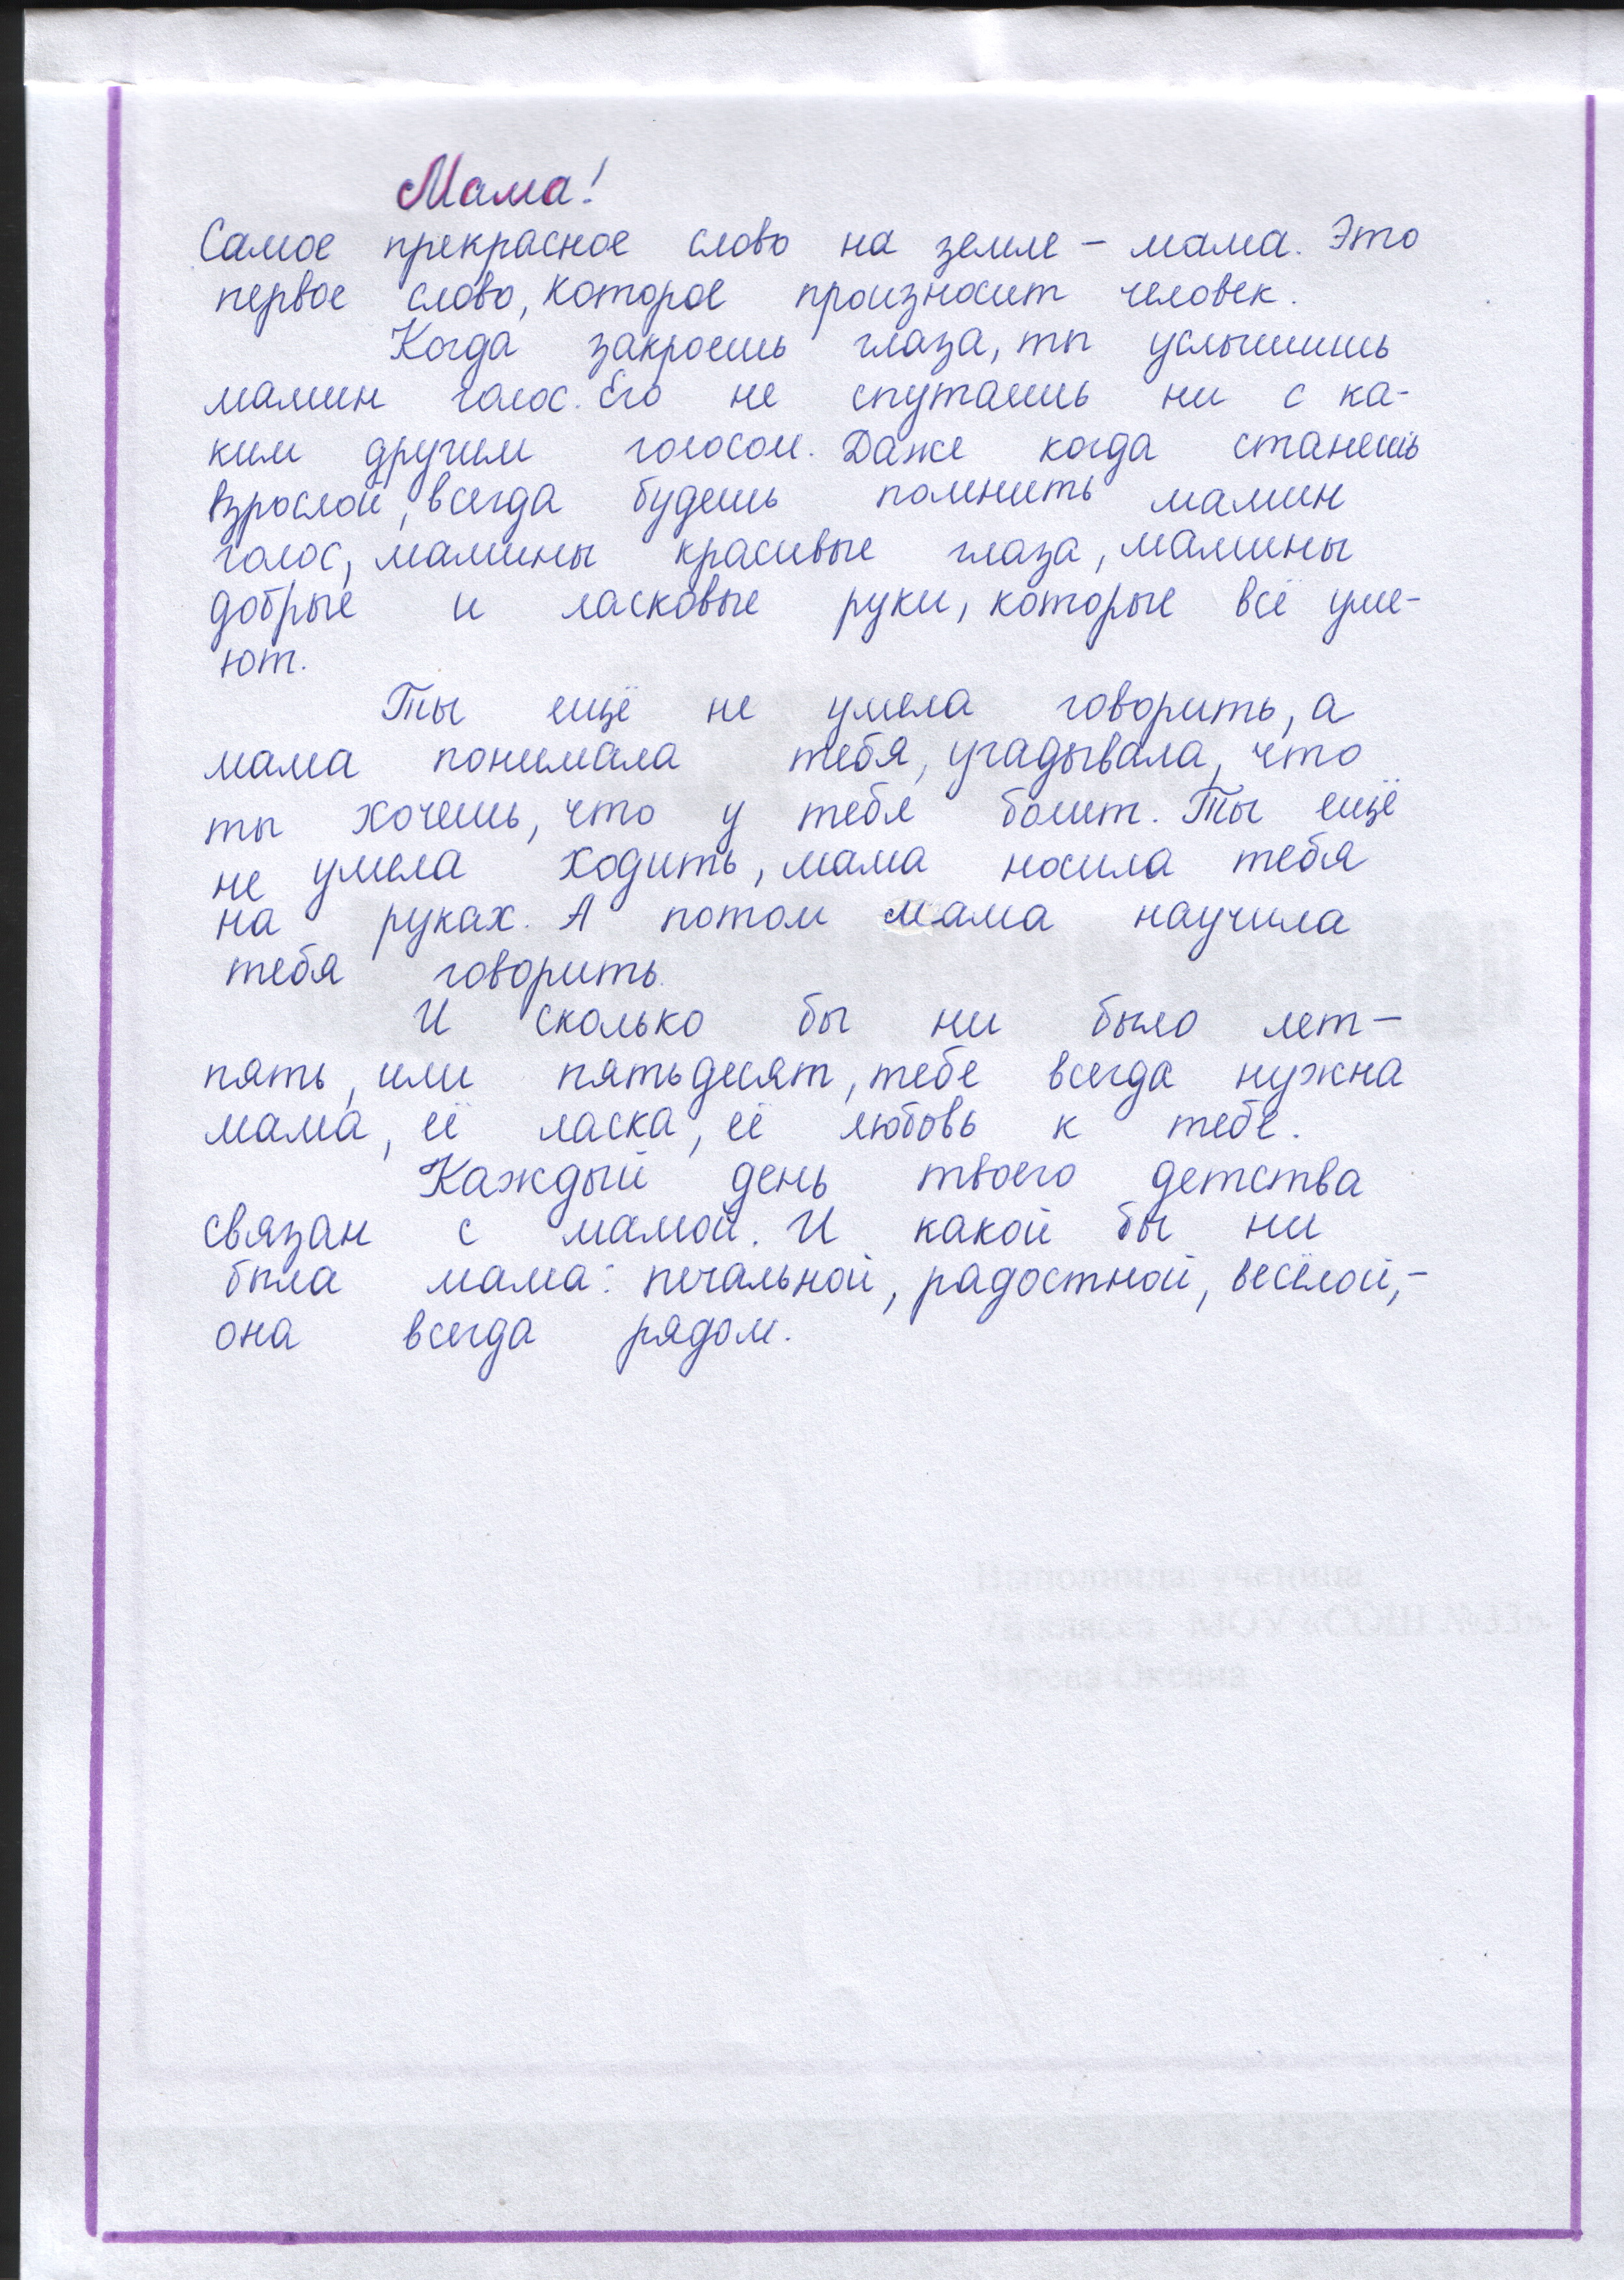 Мама!
Самое прекрасное слово на земле – мама. Это
первое слово, которое произносит человек.
Когда закроешь глаза, ты услышишь
мамин голос. Его не спутаешь ни с ка-
ким другим голосом. Даже когда станешь
взрослой, всегда будешь помнить мамин
голос, мамины красивые глаза, мамины
добрые и ласковые руки, которые всё уме-
ют.
Ты ещё не умела говорить, а
мама понимала тебя, угадывала, что
ты хочешь, что у тебя болит. Ты ещё
не умела ходить, мама носила тебя
на руках. А потом мама научила
тебя говорить.
И сколько бы ни было лет –
пять, или пятьдесят, тебе всегда нужна
мама, её ласка, её любовь к тебе.
Каждый день твоего детства
связан с мамой. И какой бы ни
была мама: печальной, радостной, весёлой, –
она всегда рядом.
Выполнила: ученица
класса МОУ «СОШ №33»
Оксана